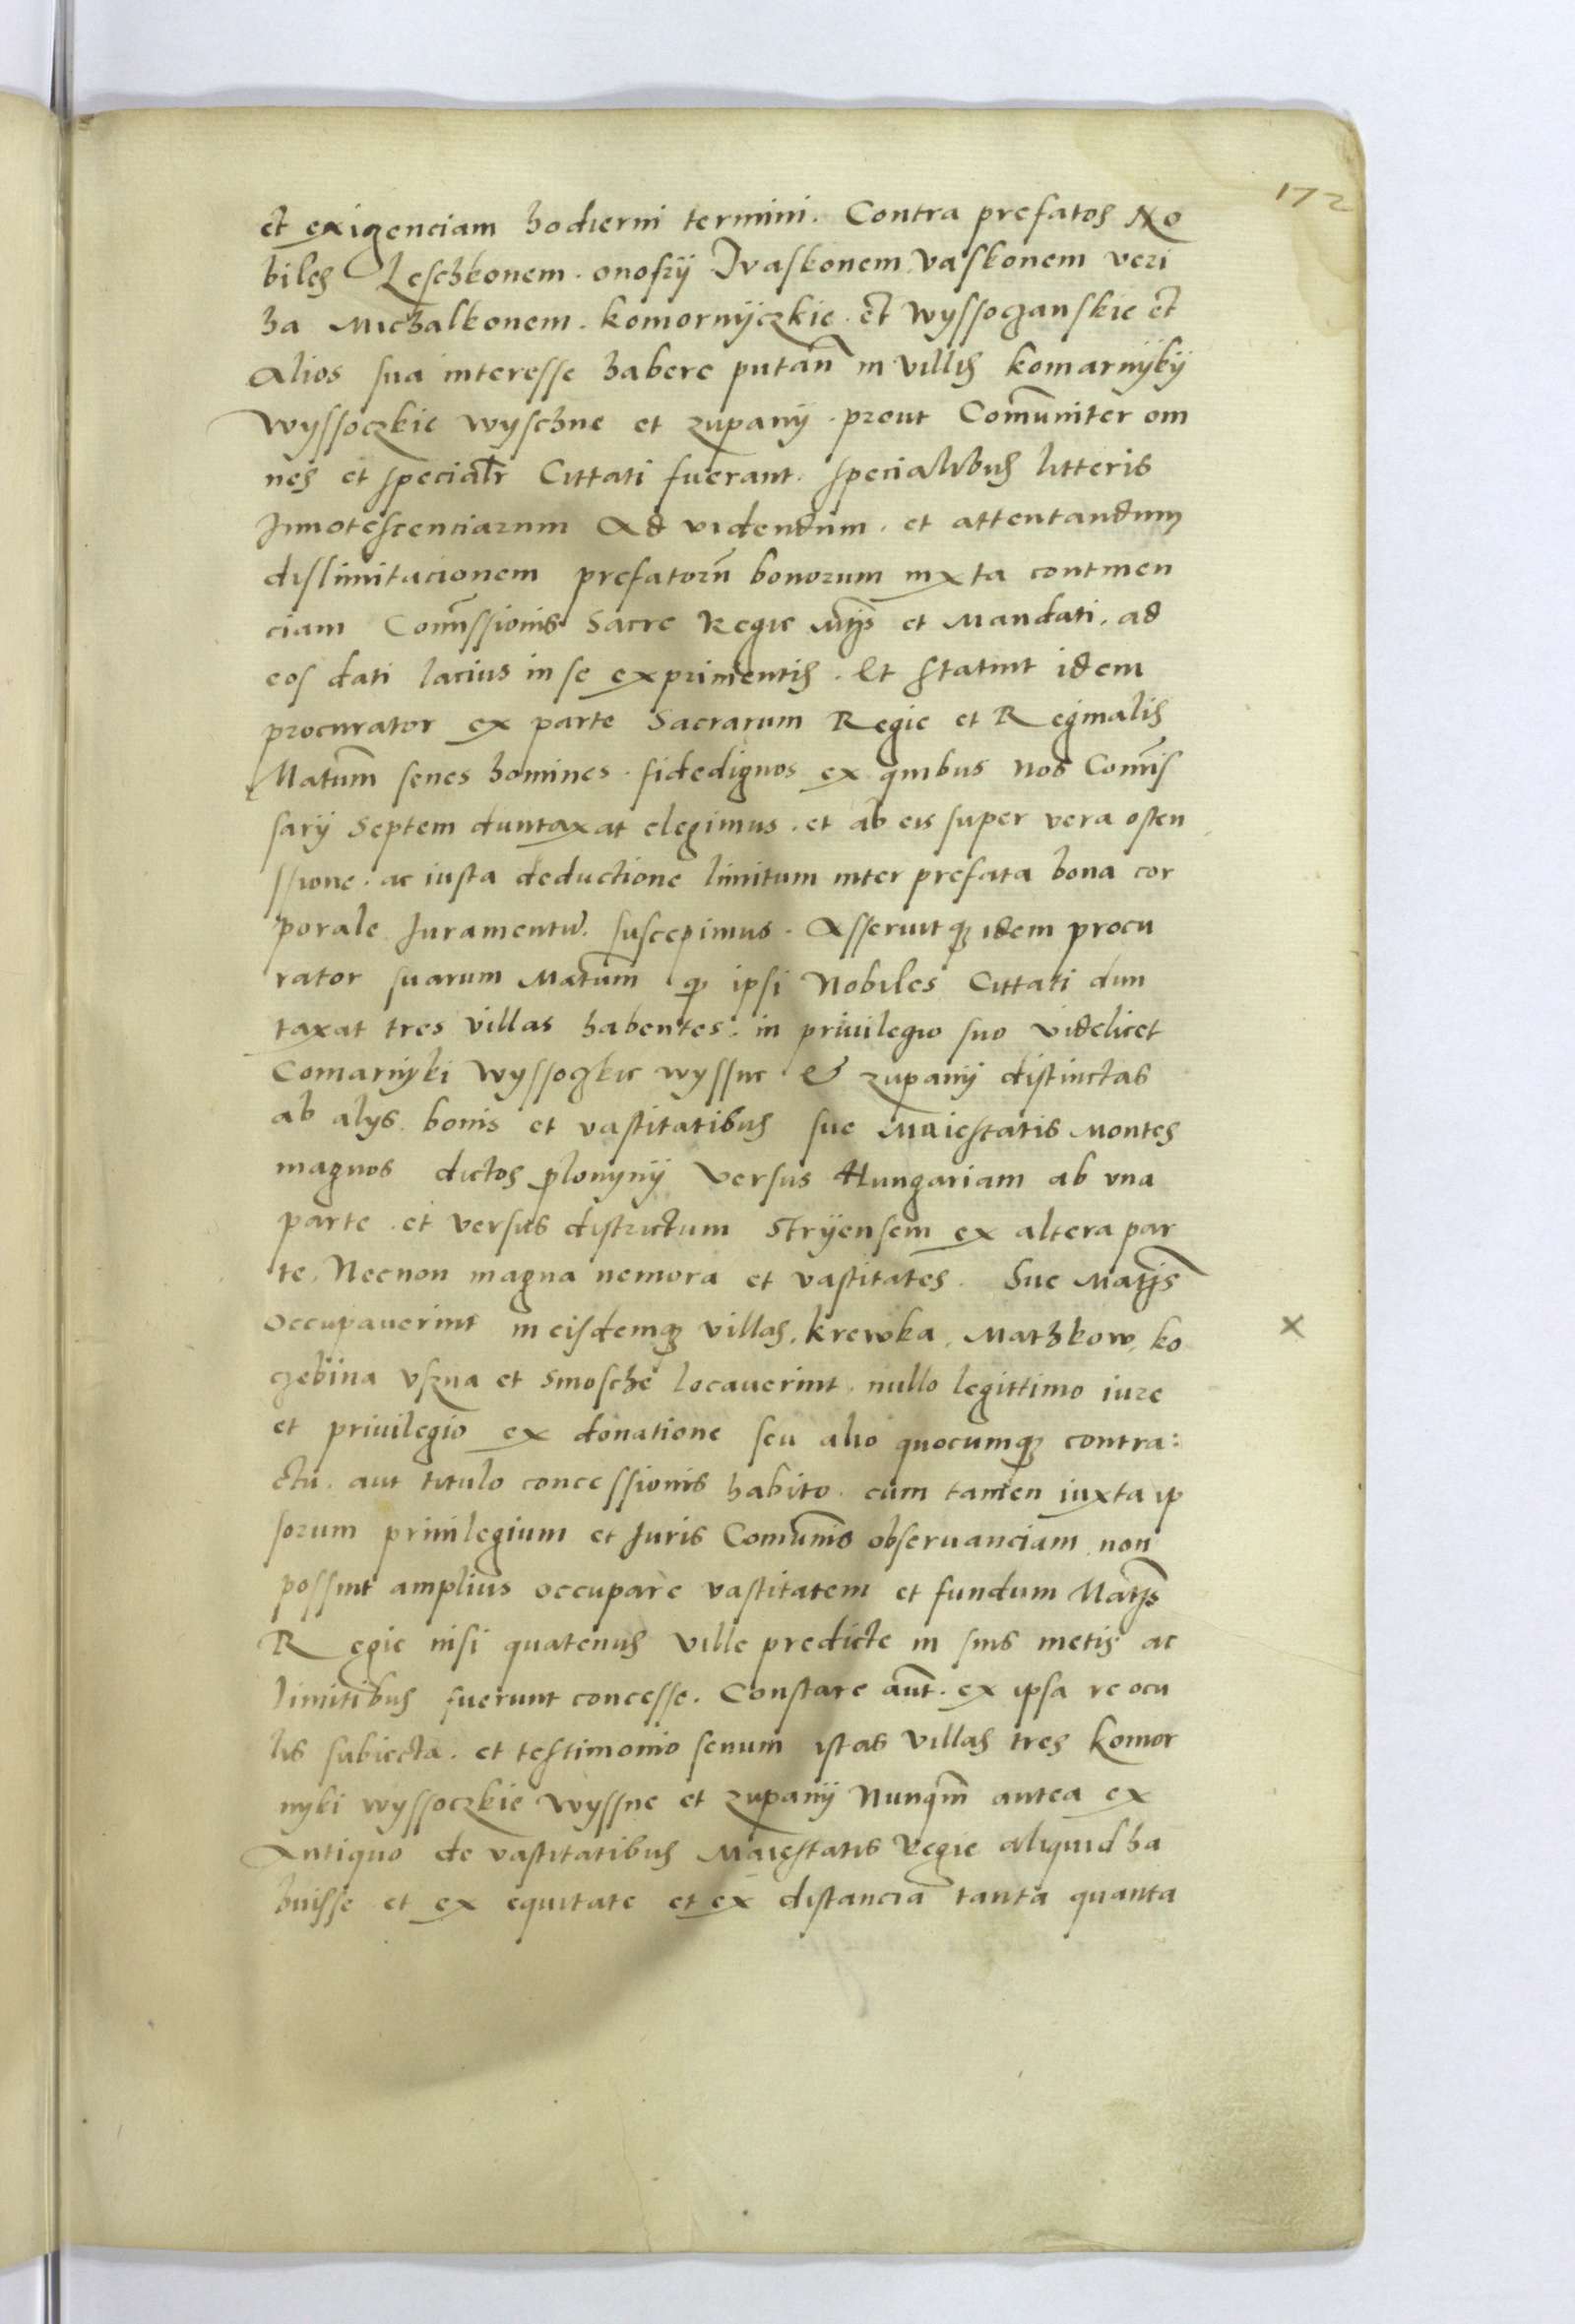 172
et exigenciam hodierni termini. Contra prefatos No
biles Leschkonem. onofrÿ Ivaskonem Vaskonem veri
ha Michalkonem. komornÿczkie. et Wÿssoczanskie et
Alios sua interesse habere putan̄ in villis komarnÿkÿ
Wyssoczkie wyschne et zupanÿ. prout Com̄uniter om
nes et specialr̄ Cittati fuerant. specialibus litteris
Innotescenciarum Ad videndum. et attentandum
dislimitacionem prefatorū bonorum iuxta continen
ciam Com̄issionis Sacre Regie Mtis̄ et Mandati. ad
eos dati lacius in se exprimentis. Et statuit idem
procurator ex parte Sacrarum Regie et Reginalis
Matum̄ senes homines. fidedignos ex quibus nos Com̄is
sarÿ Septem duntaxat elegimus. et ab eis super vera osten
ssione. ac iusta deductione limitum inter prefata bona cor
porale Juramentū. suscepimus. Asseruitqꝫ idem procu
rator suarum Matum̄ qꝫ ipsi Nobiles Cittati dun
taxat tres villas habentes. in priuilegio suo videlicet
Comarnÿki Wÿssoczkie wyssne & zupanÿ distinctas
ab alÿs. bonis et vastitatibus sue Maiestatis Montes
magnos dictos plonÿnÿ versus Hungariam ab vna
parte. et versus districtum Strÿensem ex altera par
te. Necnon magna nemora et vastitates. Sue Matis̄
occupauerint in eisdemqꝫ villas. krewka. Mathkow. ko
czebina vszna et Smosche locauerint. nullo legittimo iure
et priuilegio ex donatione seu alio quocumqꝫ contra:
ctu. aut titulo concessionis habito. cum tamen iuxta ip
sorum priuilegium et Juris Com̄unis obseruanciam non
possint amplius occupare vastitatem et fundum Matis̄
Regie nisi quatenus ville predicte in suis metis ac
limitibus fuerunt concesse. Constare aūt. ex ipsa re ocu
lis subiecta. et testimonio senum istas villas tres komor
nyki wyssoczkie wyssne et zupanÿ Nunqm̄ antea ex
Antiquo de vastitatibus Maiestatis Regie aliquid ha
buisse et ex equitate et ex distancia tanta quanta